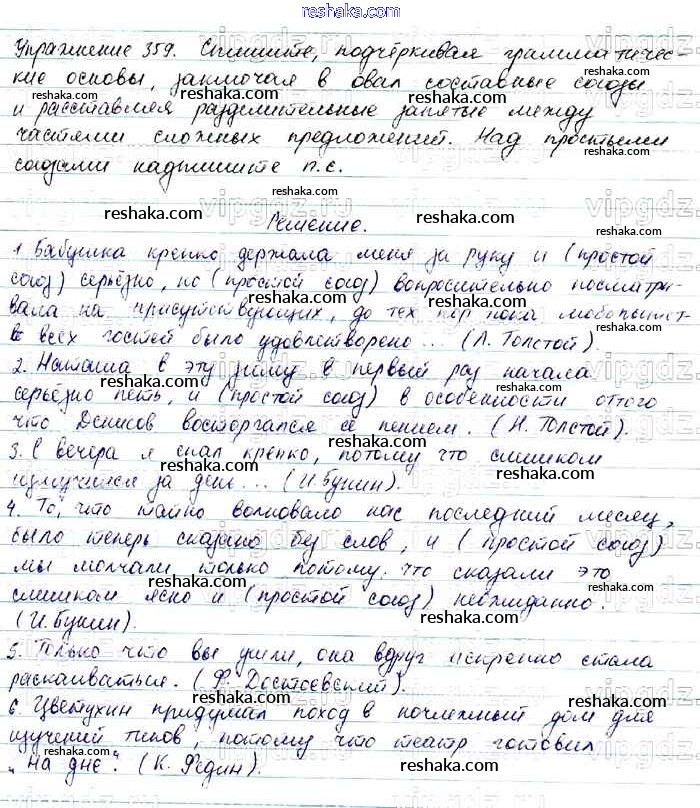 reshaka.com
Упражнение 359. Спишите, подчёркивая грамматичес-
кие основы, заключая в овал составные союзы
и расставляя разделительные запятые между
частями сложных предложений. Над простыми
союзами надпишите п.с.
Решение.
1. Бабушка крепко держала меня за руку и (простой
союз) серьёзно, но (простой союз) вопросительно посматри-
вала на присутствующих, до тех пор пока любопытст-
в всех гостей было удовлетворено... (Л. Толстой).
2. Наташа в эту зиму в первый раз начала
серьёзно петь, и (простой союз) в особенности оттого
что Денисов восторгался её пением. (Н. Толстой).
3. С вечера я спал крепко, потому что слишком
измучился за день... (И. Бунин).
4. То, что тайно волновало нас последний месяц,
было теперь сказано без слов, и (простой союз)
мы молчали только потому, что сказали это
слишком ясно и (простой союз) неожиданно.
(И. Бунин).
5. Только что вы ушли, она вдруг искренно стала
раскаиваться. (Ф. Достоевский).
6. Цветухин придумал поход в ночлежный дом для
изучений типов, потому что театр готовил
„На дне". (К. Федин).
reshaka.com